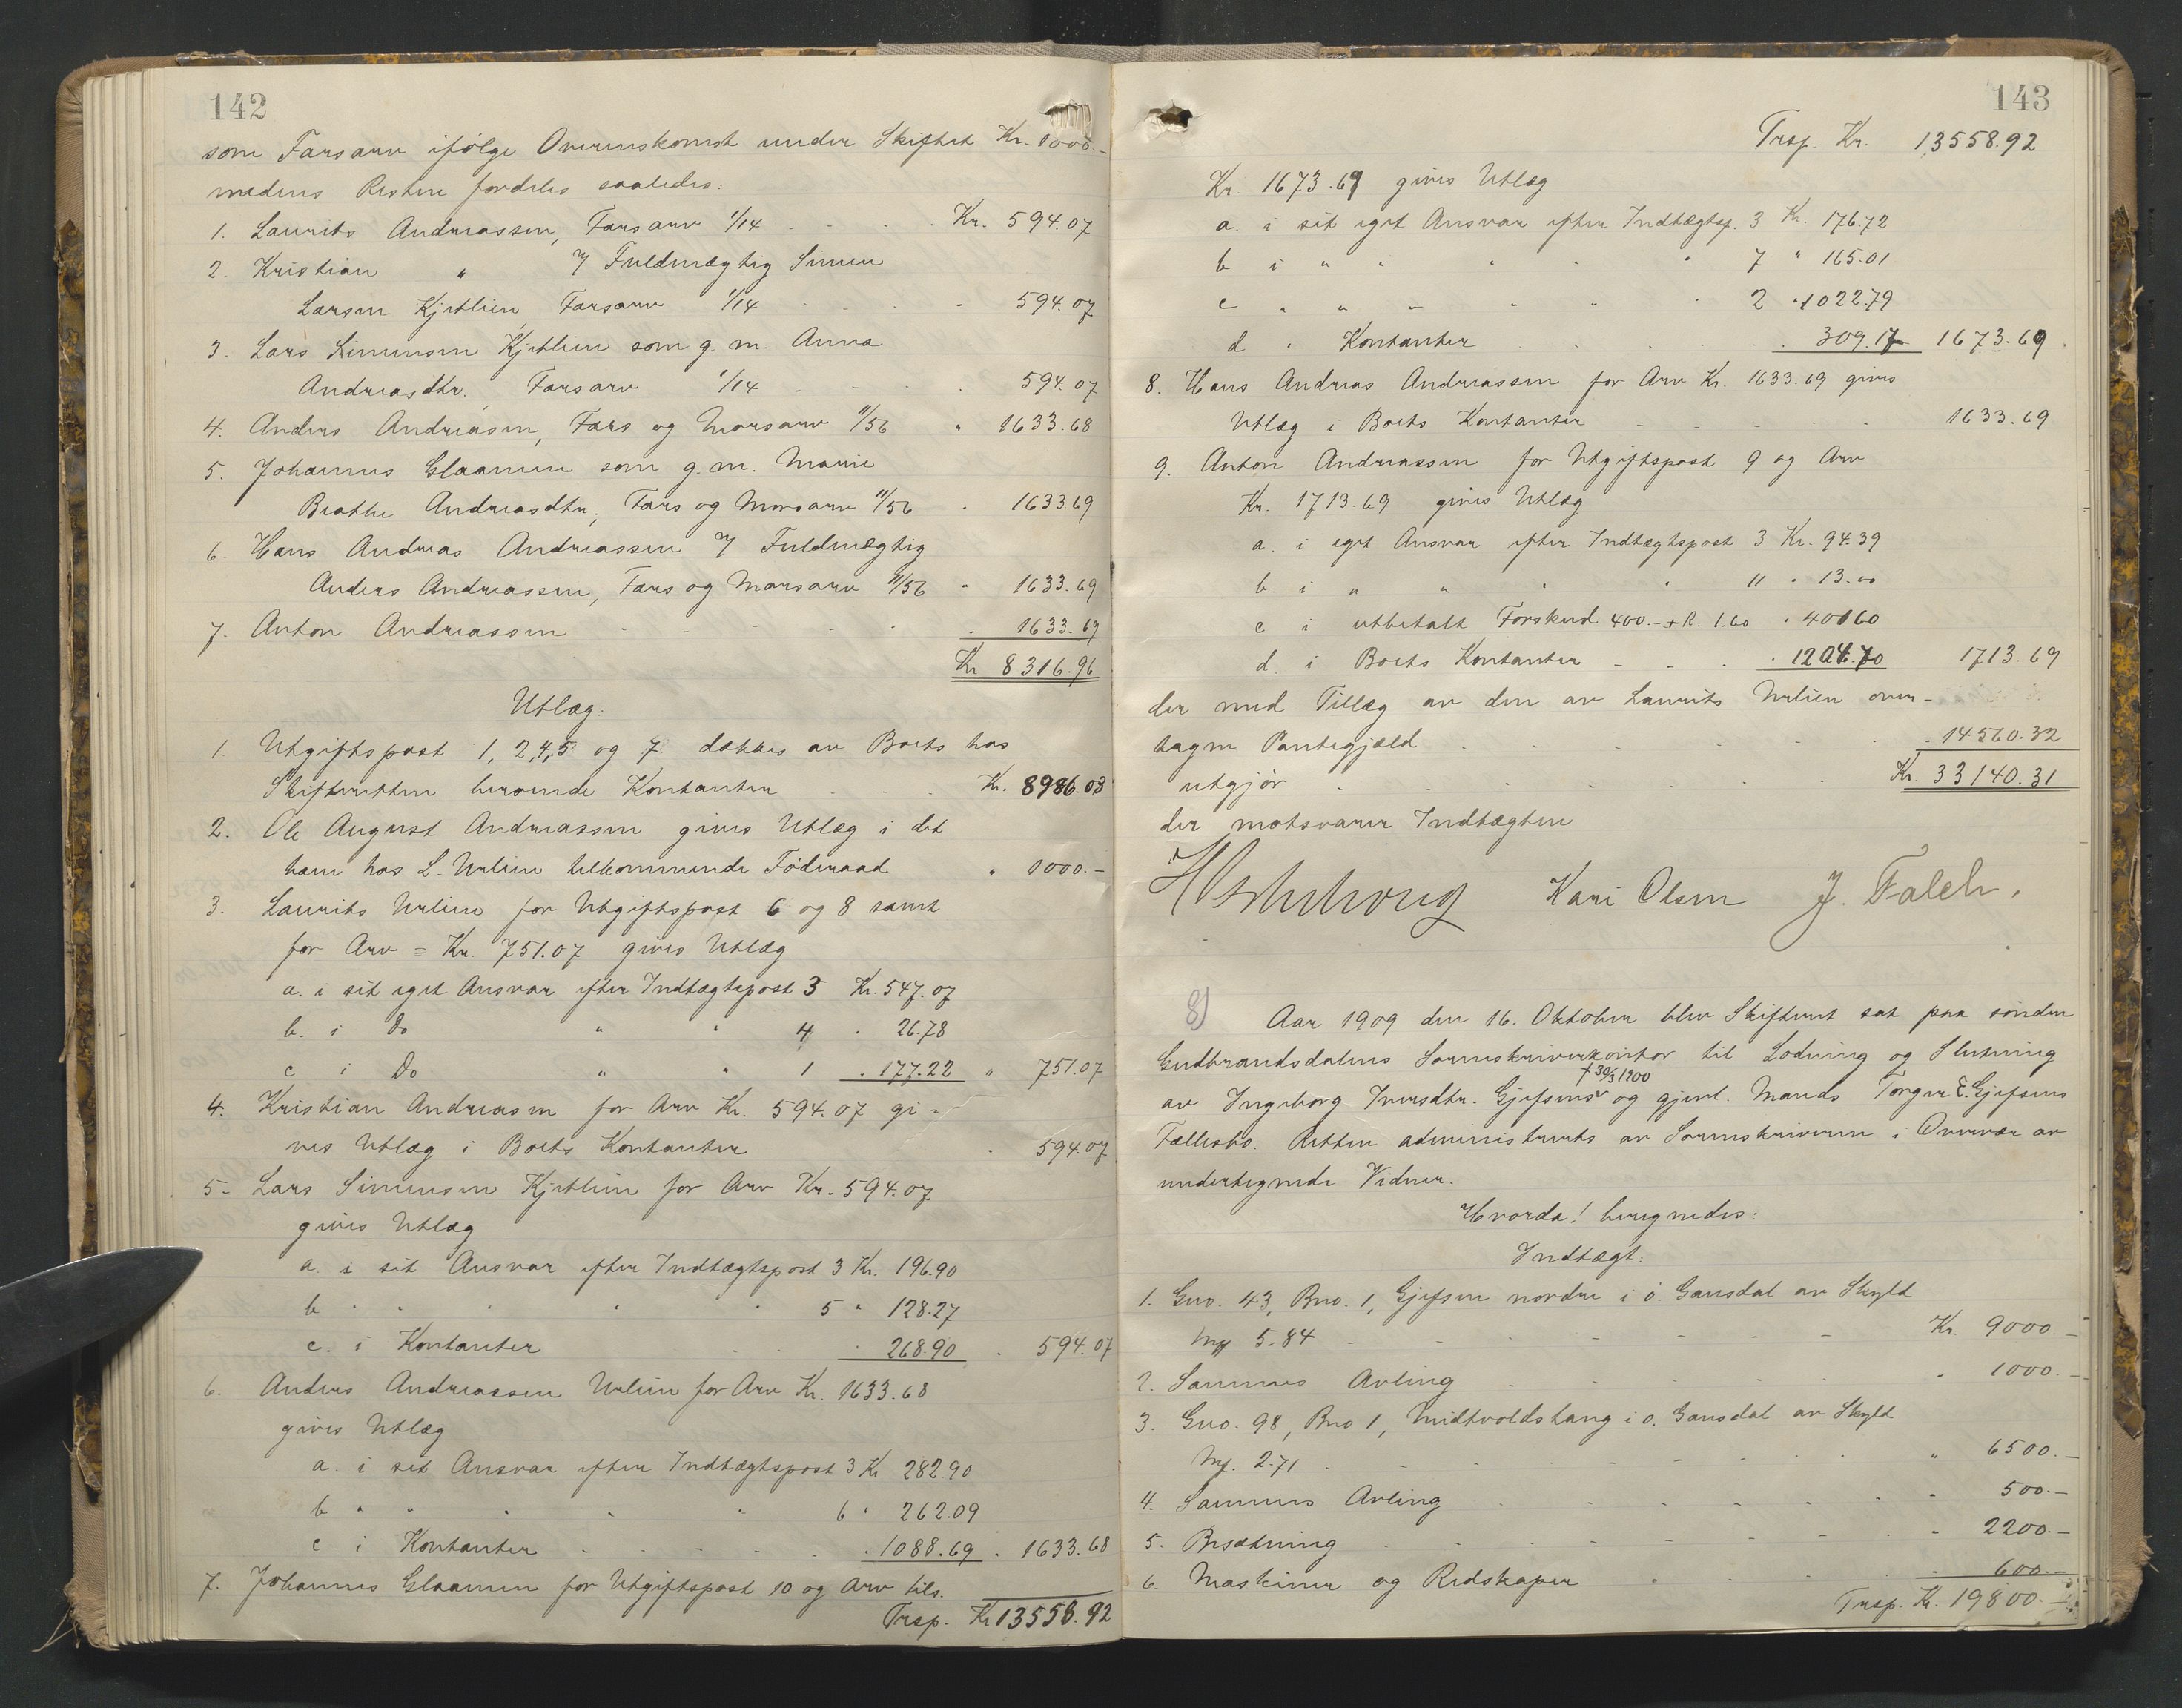 142
som Farsarv ifølge Overenskomst under Skiftet Kr. 1000.-
medens Resten fordeles saaledes:
1. Laurits Andreassen, Farsarv 1/14 Kr. 594.07
2. Kristian " v/ Fuldmægtig Simen
Larsen Kjetlien, Farsarv 1/14 - 594.07
3. Lars Simensen Kjetlien som g. m. Anna
Andreasdtr. Farsarv 1/14 - 594.07
4. Anders Andreasen, Fars og Morsarv 11/56 " 1633.68
5. Johannes Glaamen som g. m. Marie
Beathe Andreasdtr., Fars og Morsarv 11/56 - 1633.69
6. Hans Andreas Andreassen v/ Fuldmægtig
Anders Andreassen, Fars og Morsarv 11/56 - 1633.69
7. Anton Andreassen - 1633.69
Kr 8316.96
Utlæg:
1 Utgiftspost 1, 2, 4, 5 og 7 dækkes av Boets hos
Skifteretten beroende Kontanter Kr. 8986.03
2. Ole August Andreassen gives Utlæg i det
ham hos L. Urlien tilkommende Føderaad " 1000.-
3. Laurits Urlien for Utgiftspost 6 og 8 samt
for Arv = Kr. 751.07 gives Utlæg
a. i sit eget Ansvar efter Indtægtspost 3 Kr. 547.07
b. i Do " " 4 . 26.78
c i Do " " 1 . 177.22 " 751.07
4. Kristian Andreasen for Arv Kr. 594.07 gi-
ves Utlæg i Boets Kontanter - 594.07
5- Lars Simensen Kjetlien for Arv Kr. 594.07
gives Utlæg
a. i sit Ansvar efter Indtægtspost 3 Kr. 196.90
b " " " " " 5 " 128.27
c. i Kontanter . 268.90 . 594.07
6. Anders Andreassen Urlien for Arv Kr. 1633.68
gives Utlæg
a. i sit Ansvar efter Indtægtspost 3 Kr 282.90
b " " " " 6 " 262.09
c i Kontanter . 1088.69 . 1633.68
7. Johannes Glaamen for Utgiftspost 10 og Arv tils.
Trsp. Kr 13558.92
143
Trsp. Kr. 13558.92
Kr. 1673.69 gives Utlæg
a. i sit eget Ansvar efter Indtægtsp. 3 Kr. 176.72
b i " " " " " 7 " 165.01
c " " " " " " 2 " 1022.79
d " Kontanter . 309.17 1673.69
8. Hans Andreas Andreassen for Arv Kr. 1633.69 gives
Utlæg i Boets Kontanter 1633.69
9. Anton Andreassen for Utgiftspost 9 og Arv
Kr. 1713.69 gives Utlæg
a. i eget Ansvar efter Indtægtspost 3 Kr. 94.39
b. i " " " " 11 " 13.00
c i utbetalt Forskud 400.- + R. 1.60 . 401.60
d. i Boets Kontanter - - . 1204.70 1713.69
der med Tillæg av den av Laurits Urlien over-
tagne Pantegjæld . 14560.32
utgjør Kr. 33140.31
der motsvarer Indtægten
Kari Olsen J. Falch.
8) Aar 1909 den 16. Oktober blev Skifteret sat paa søndre
Gudbrandsdalens Sorenskriverkontor til Lodning og Slutning
† 30/3 1900
av Ingeborg Iversdtr. Gjefsens og gjenl. Mands Torger E. Gjefsens
Fællesbo. Retten administrertes av Sorenskriveren i Overvær av
undertegnede Vidner.
Hvorda! beregnedes:
Indtægt:
1. Gno. 43, Bno. 1, Gjefsen nordre i ø. Gausdal av Skyld
Mrk 5.84 Kr. 9000.-
2. Sammes Avling " 1000.-
3. Gno. 98, Bno 1, Midtvoldshaug i ø. Gausdal av Skyld
Mrk. 2.71 " 6500.-
4. Sammes Avling " 500.-
5. Besætning " 2200.-
6. Maskiner og Redskaper " 600.-
Trsp. Kr. 19800.-